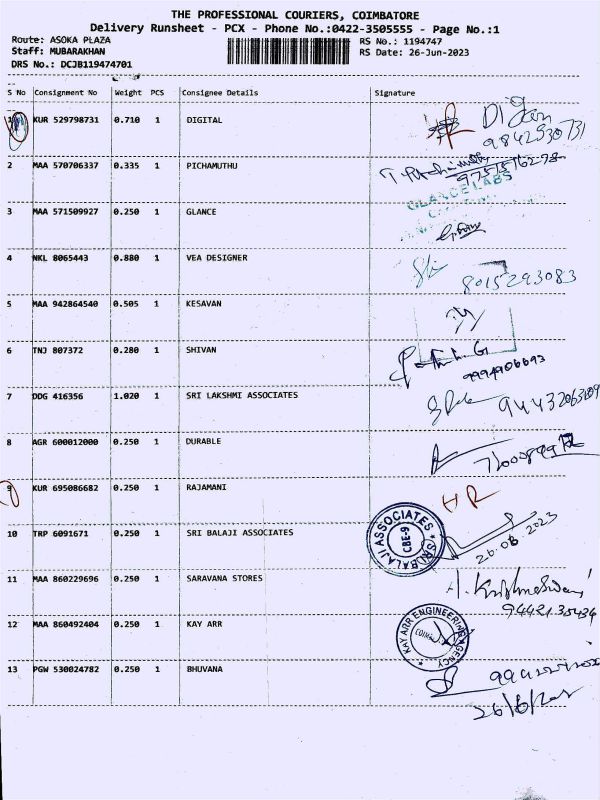 THE PROFESSIONAL COURIERS, COIMBATORE
Delivery Runsheet - PCX - Phone No.:0422-3505555 - Page No.:1
Route: ASOKA PLAZA
RS No.: 1194747
Staff: MUBARAKHAN
RS Date: 26-Jun-2023
DRS No.: DCJB119474701
S No Consignment No Weight PCS Consignee Details Signature
1 KUR 529798731 0.710 1 DIGITAL
9842530731
2 MAA 570706337 0.335 1 PICHAMUTHU
GLANCE LABS
3 MAA 571509927 0.250 1 GLANCE
4 NKL 8065443 0.880 1 VEA DESIGNER
8015293083
5 MAA 942864540 0.505 1 KESAVAN
6 TNJ 807372 0.280 1 SHIVAN
9994906693
7 DDG 416356 1.020 1 SRI LAKSHMI ASSOCIATES
8 AGR 600012000 0.250 1 DURABLE
9 KUR 695086682 0.250 1 RAJAMANI
HR
10 TRP 6091671 0.250 1 SRI BALAJI ASSOCIATES
SRI BALAJI ASSOCIATES
CBE-9
26.06.2023
11 MAA 860229696 0.250 1 SARAVANA STORES
12 MAA 860492404 0.250 1 KAY ARR
KAY ARR ENGINEERING AGENCY
13 PGW 530024782 0.250 1 BHUVANA